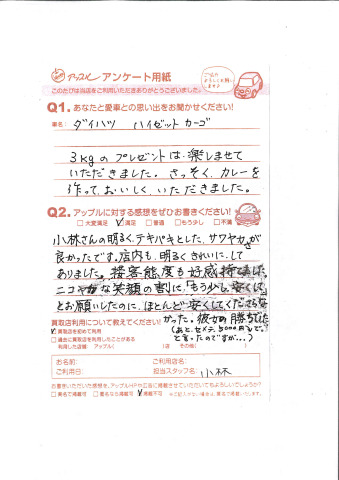 アップル アンケート用紙
このたびは当店をご利用いただきありがとうございました。
Q1. あなたと愛車との思い出をお聞かせください!
車名: ダイハツ ハイゼットカーゴ
3kgのプレゼントは楽しませて
いただきました。さっそく、カレーを
作って、おいしく、いただきました。
Q2. アップルに対する感想をぜひお書きください!
□大変満足 ☑満足 □普通 □もう少し □不満
小林さんの明るく、テキパキとした、サワヤカさが
良かったです。店内も、明るくきれいにして
ありました。接客態度も好感持てました。
ニコヤカな笑顔の割に、「もう少し、安くして」
とお願いしたのに、ほとんど安くしてくださらな
かった。彼女の勝ちでした
(あと、セメテ、5000円もどで、
と言ったのですが…)
買取店利用について教えてください!
☑買取店を初めて利用
□過去に買取店を利用したことがある
利用した店舗: アップル( )店 その他( )
お名前: ご利用店名:
ご利用日: 担当スタッフ名: 小林
お書きいただいた感想を、アップルHPや広告に掲載させていただいてもよろしいでしょうか?
□実名で掲載可 □匿名なら掲載可 ☑掲載不可 ※ご記入がない場合は、匿名で掲載いたします。